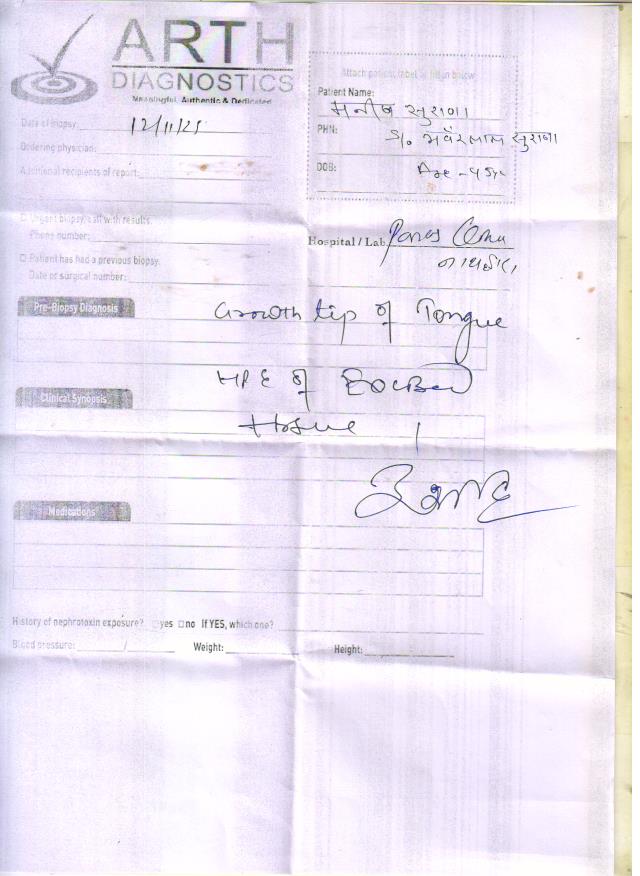 ARTH
DIAGNOSTICS
Meaningful, Authentic & Dedicated
Attach patient label or fill in below
Patient Name:
मनीष सुराणा
Date of Biopsy: 12/11/25
PHN: S/o. भवँरलाल सुराणा
Ordering physician:
DOB: Age - 45yr
Additional recipients of report:
Urgent biopsy, call with results.
Phone number:
Hospital / Lab Paras
Patient has had a previous biopsy.
Date or surgical number:
Pre-Biopsy Diagnosis
Growth tip of Tongue
Clinical Synopsis
HPE of
tissue
Medications
History of nephrotoxin exposure? yes no If YES, which one?
Blood pressure: / Weight: Height: